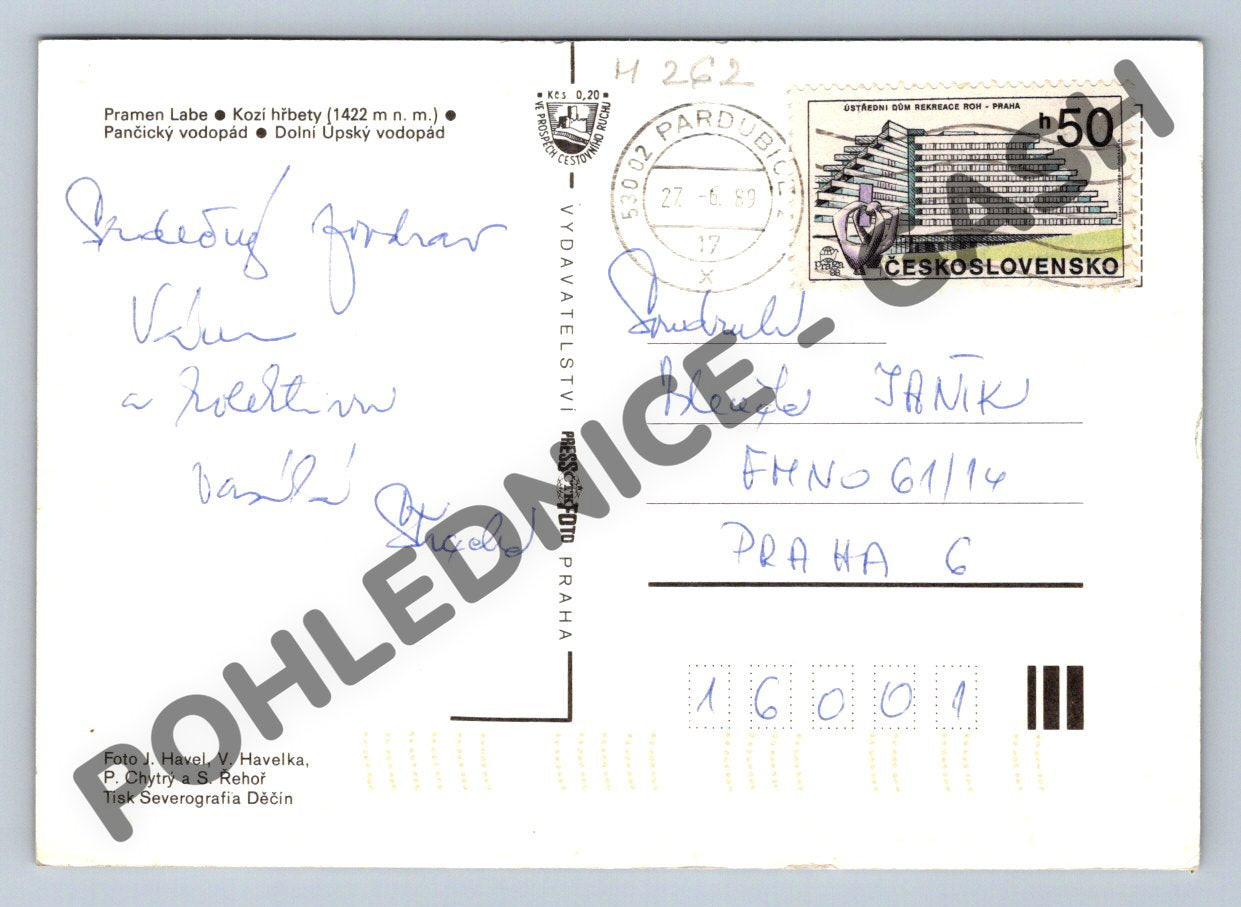 Pramen Labe ● Kozí hřbety (1422 m n. m.) ●
Pančický vodopád ● Dolní Úpský vodopád
Srdečný pozdrav
Vám
a kolektivu
zasílá
Kčs 0,20
VE PROSPĚCH CESTOVNÍHO RUCHU
VYDAVATELSTVÍ PRESSFOTO PRAHA
ČTK
M 262
53002 PARDUBICE 2
27. -6. 89
17
x
ÚSTŘEDNÍ DŮM REKREACE ROH - PRAHA
h50
praga 88
ČESKOSLOVENSKO
Soudruh
JANÍK
FMNO 61/14
PRAHA 6
16001
Foto J. Havel, V. Havelka,
P. Chytrý a S. Řehoř
Tisk Severografia Děčín
POHLEDNICE - CASH